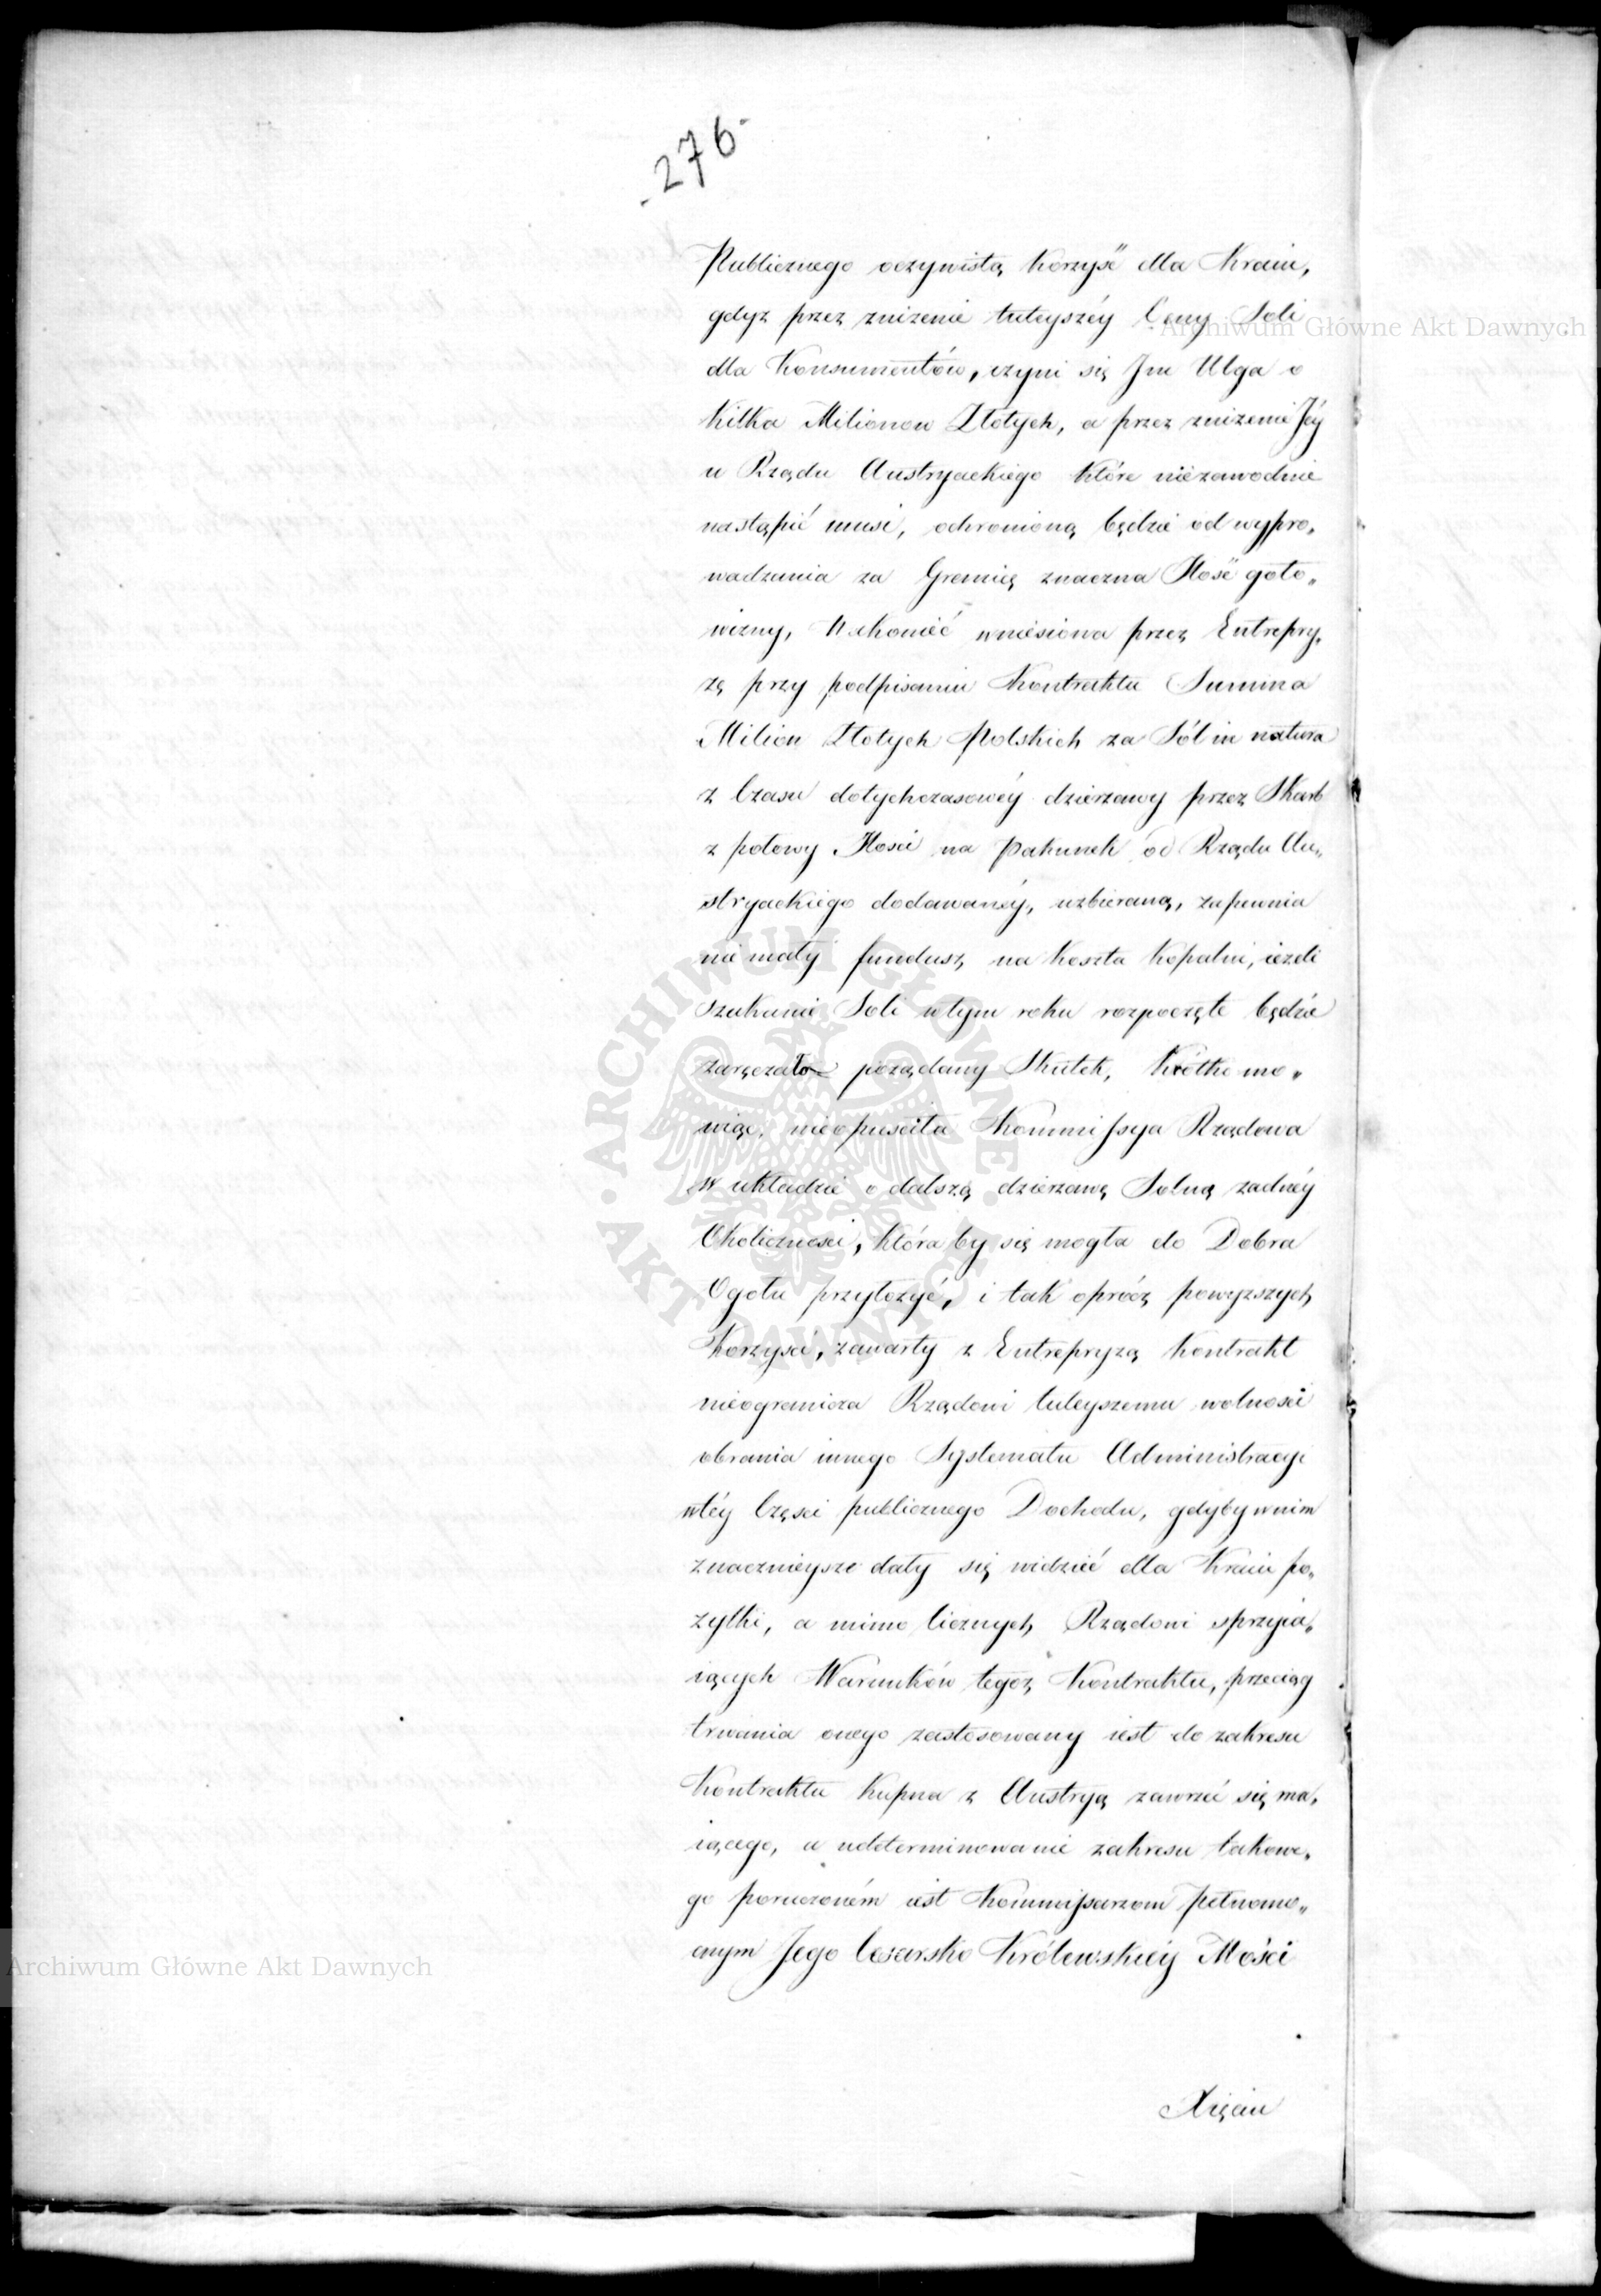 -276-
Publicznego oczywistą korzyść dla Kraiu,
gdyż przez zniżenie tuteyszéy Ceny Soli
dla Konsumentów, czyni się Im Ulga o
kilka Milionow Złotych, a przez zniżenie Jéy
u Rządu Austryackiego które niezawodnie
nastąpić musi, ochronioną będzie od wypro„
wadzenia za Granicę znaczna Ilość goto„
wizny, Nakonieć wniesiona przez Entrepry„
zę przy podpisaniu Kontraktu Summa
Milion Złotych Polskich za Sól in natura
z Czasu dotychczasowéy dzierzawy przez Skarb
z połowy Ilości na Pakunek od Rządu Au„
stryackiego dodawanéy, uzbieraną, zapewnia
nie mały fundusz na koszta kopalni, ieżeli
szukanie Soli wtym roku rozpoczęte będzie
zaręczało pożądany Skutek, Krótko mo„
wiąc, nieopuściła Kommissya Rządowa
w układzie o dalszą dzierzawę Solną żadnéy
Okoliczności, która by się mogła do Dobra
Ogółu przyłożyć, i tak oprócz powyższych
Korzyści, zawarty z Entrepryzą Kontrakt
nieogranicza Rządowi tuteyszemu wolności
obrania innego Systematu Administracyi
wtéy Części publicznego Dochodu, gdyby w nim
znacznieysze dały się widzieć dla Kraiu po„
zytki, a mimo licznych Rządowi sprzyia„
iących Warunków tegoż Kontraktu, przeciąg
trwania onego zastosowany iest do zakresu
Kontraktu Kupna z Austryą zawrzeć się ma„
iącego, a udeterminowanie zakresu takowe„
go poruczoném iest Kommissarzom pełnomo„
cnym Jego Cesarsko Królewskiéy Mości
Xięciu
Archiwum Główne Akt Dawnych
Archiwum Główne Akt Dawnych
ARCHIWUM GŁÓWNE AKT DAWNYCH